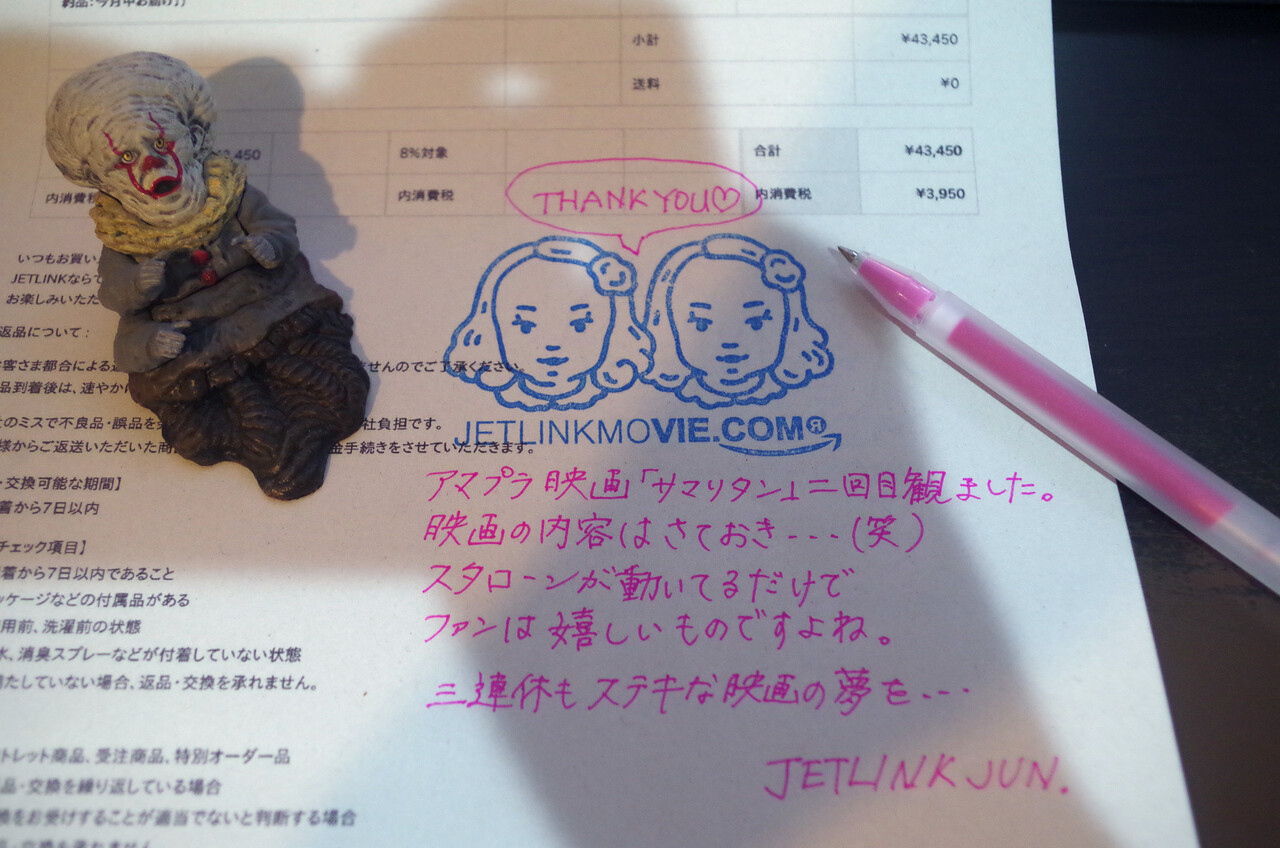 納品:今月中お届け
小計 ¥43,450
送料 ¥0
3,450 8%対象 合計 ¥43,450
内消費税 内消費税 内消費税 ¥3,950
THANK YOU♡
いつもお買い
JETLINKなら
お楽しみいただ
返品について:
お客さま都合による
ませんのでご了承ください。
品到着後は、速やか
のミスで不良品・誤品を
社負担です。
様からご返送いただいた商
金手続きをさせていただきます。
JETLINKMOVIE.COM®
・交換可能な期間】
着から7日以内
チェック項目】
着から7日以内であること
ッケージなどの付属品がある
用前、洗濯前の状態
水、消臭スプレーなどが付着していない状態
たしていない場合、返品・交換を承れません。
トレット商品、受注商品、特別オーダー品
品・交換を繰り返している場合
換をお受けすることが適当でないと判断する場合
アマプラ映画「サマリタン」二回目観ました。
映画の内容はさておき---(笑)
スタローンが動いてるだけで
ファンは嬉しいものですよね。
三連休もステキな映画の夢を---
JETLINK JUN.